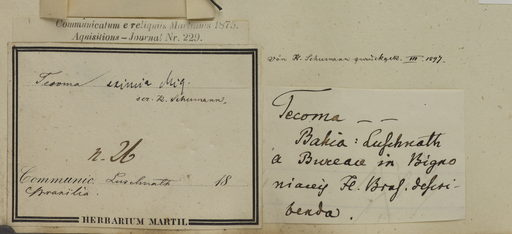 Communicatum e reliquiis Martianis 1875.
Aquisitions – Journal Nr. 229.
Tecoma eximia Miq.
scr. K. Schumann.
n. 26
Communic. Luschnath 18
Brasilia
HERBARIUM MARTII.
von K. Schumann zurückgek. III. 1897.
Tecoma — —
Bahia: Luschnath
a Bureau in Bigno
niaceis Fl. Bras. descri-
benda.